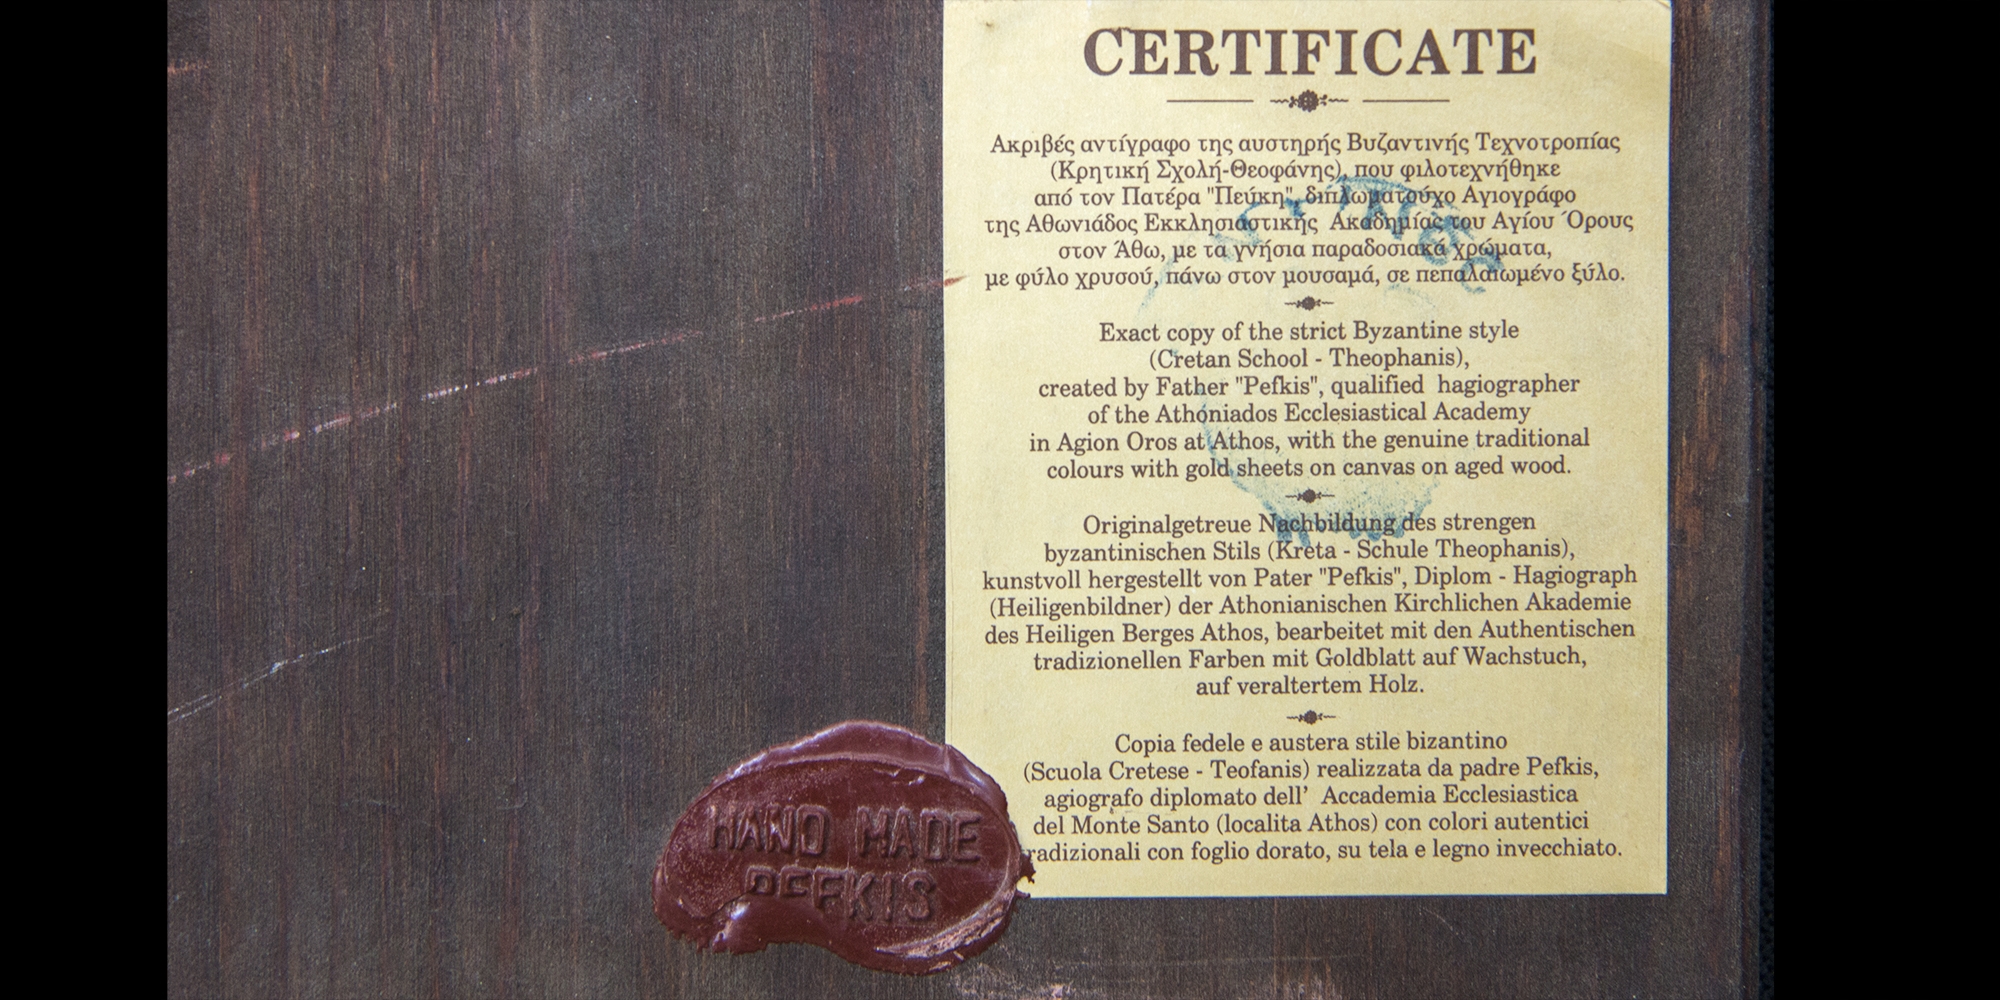 CERTIFICATE
Ακριβές αντίγραφο της αυστηρής Βυζαντινής Τεχνοτροπίας
(Κρητική Σχολή-Θεοφάνης), που φιλοτεχνήθηκε
από τον Πατέρα "Πεύκη", διπλωματούχο Αγιογράφο
της Αθωνιάδος Εκκλησιαστικής Ακαδημίας του Αγίου Όρους
στον Άθω, με τα γνήσια παραδοσιακά χρώματα,
με φύλο χρυσού, πάνω στον μουσαμά, σε πεπαλαιωμένο ξύλο.
Exact copy of the strict Byzantine style
(Cretan School - Theophanis),
created by Father "Pefkis", qualified hagiographer
of the Athoniados Ecclesiastical Academy
in Agion Oros at Athos, with the genuine traditional
colours with gold sheets on canvas on aged wood.
Originalgetreue Nachbildung des strengen
byzantinischen Stils (Kreta - Schule Theophanis),
kunstvoll hergestellt von Pater "Pefkis", Diplom - Hagiograph
(Heiligenbildner) der Athonianischen Kirchlichen Akademie
des Heiligen Berges Athos, bearbeitet mit den Authentischen
tradizionellen Farben mit Goldblatt auf Wachstuch,
auf veraltertem Holz.
Copia fedele e austera stile bizantino
(Scuola Cretese - Teofanis) realizzata da padre Pefkis,
agiografo diplomato dell' Accademia Ecclesiastica
del Monte Santo (localita Athos) con colori autentici
radizionali con foglio dorato, su tela e legno invecchiato.
HAND MADE
PEFKIS